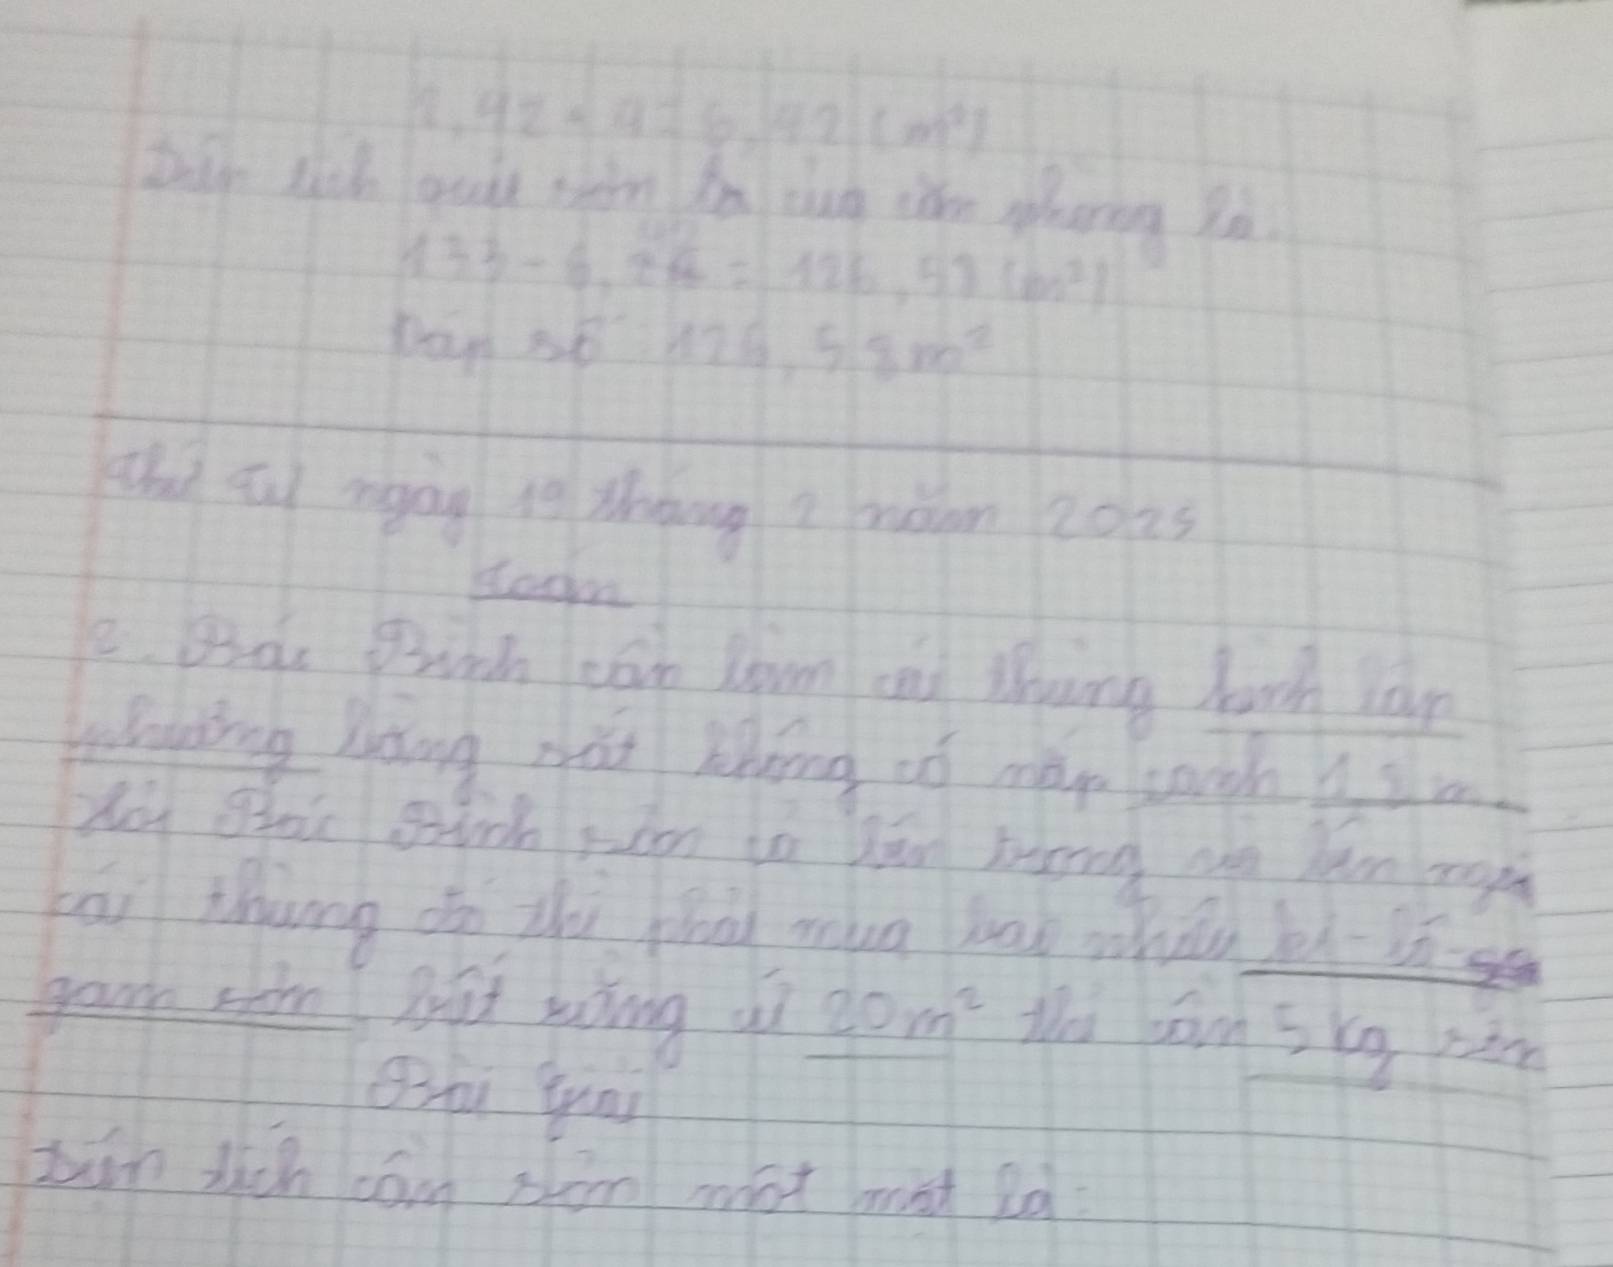 Diện tích quét sơn là của căn phòng là.
133 - 6,42 = 126,58 (m²)
Đáp số 126,58 m²
Thứ tư ngày 19 tháng 2 năm 2025
Toán
2. Bác Bình cần làm cái thùng hình lập
phương bằng sắt không có nắp cạnh m
Hỏi Bác Bình sơn cả bên trong và bên ngoài
cái thùng đó thì phải mua bao nhiêu ki-lô-
gam sơn. Biết rằng cứ 20 m² thì cần 5 kg sơn
Bài giải
Diện tích cần sơn một mặt là: